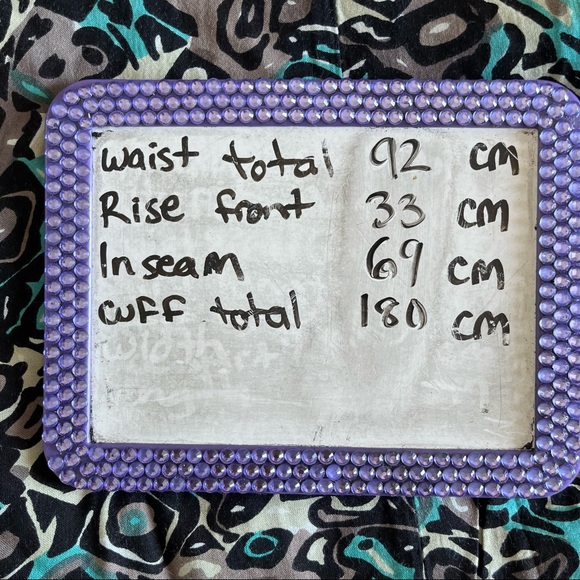 waist total 92 cm
Rise front 33 cm
Inseam 69 cm
cuff total 180 cm
width